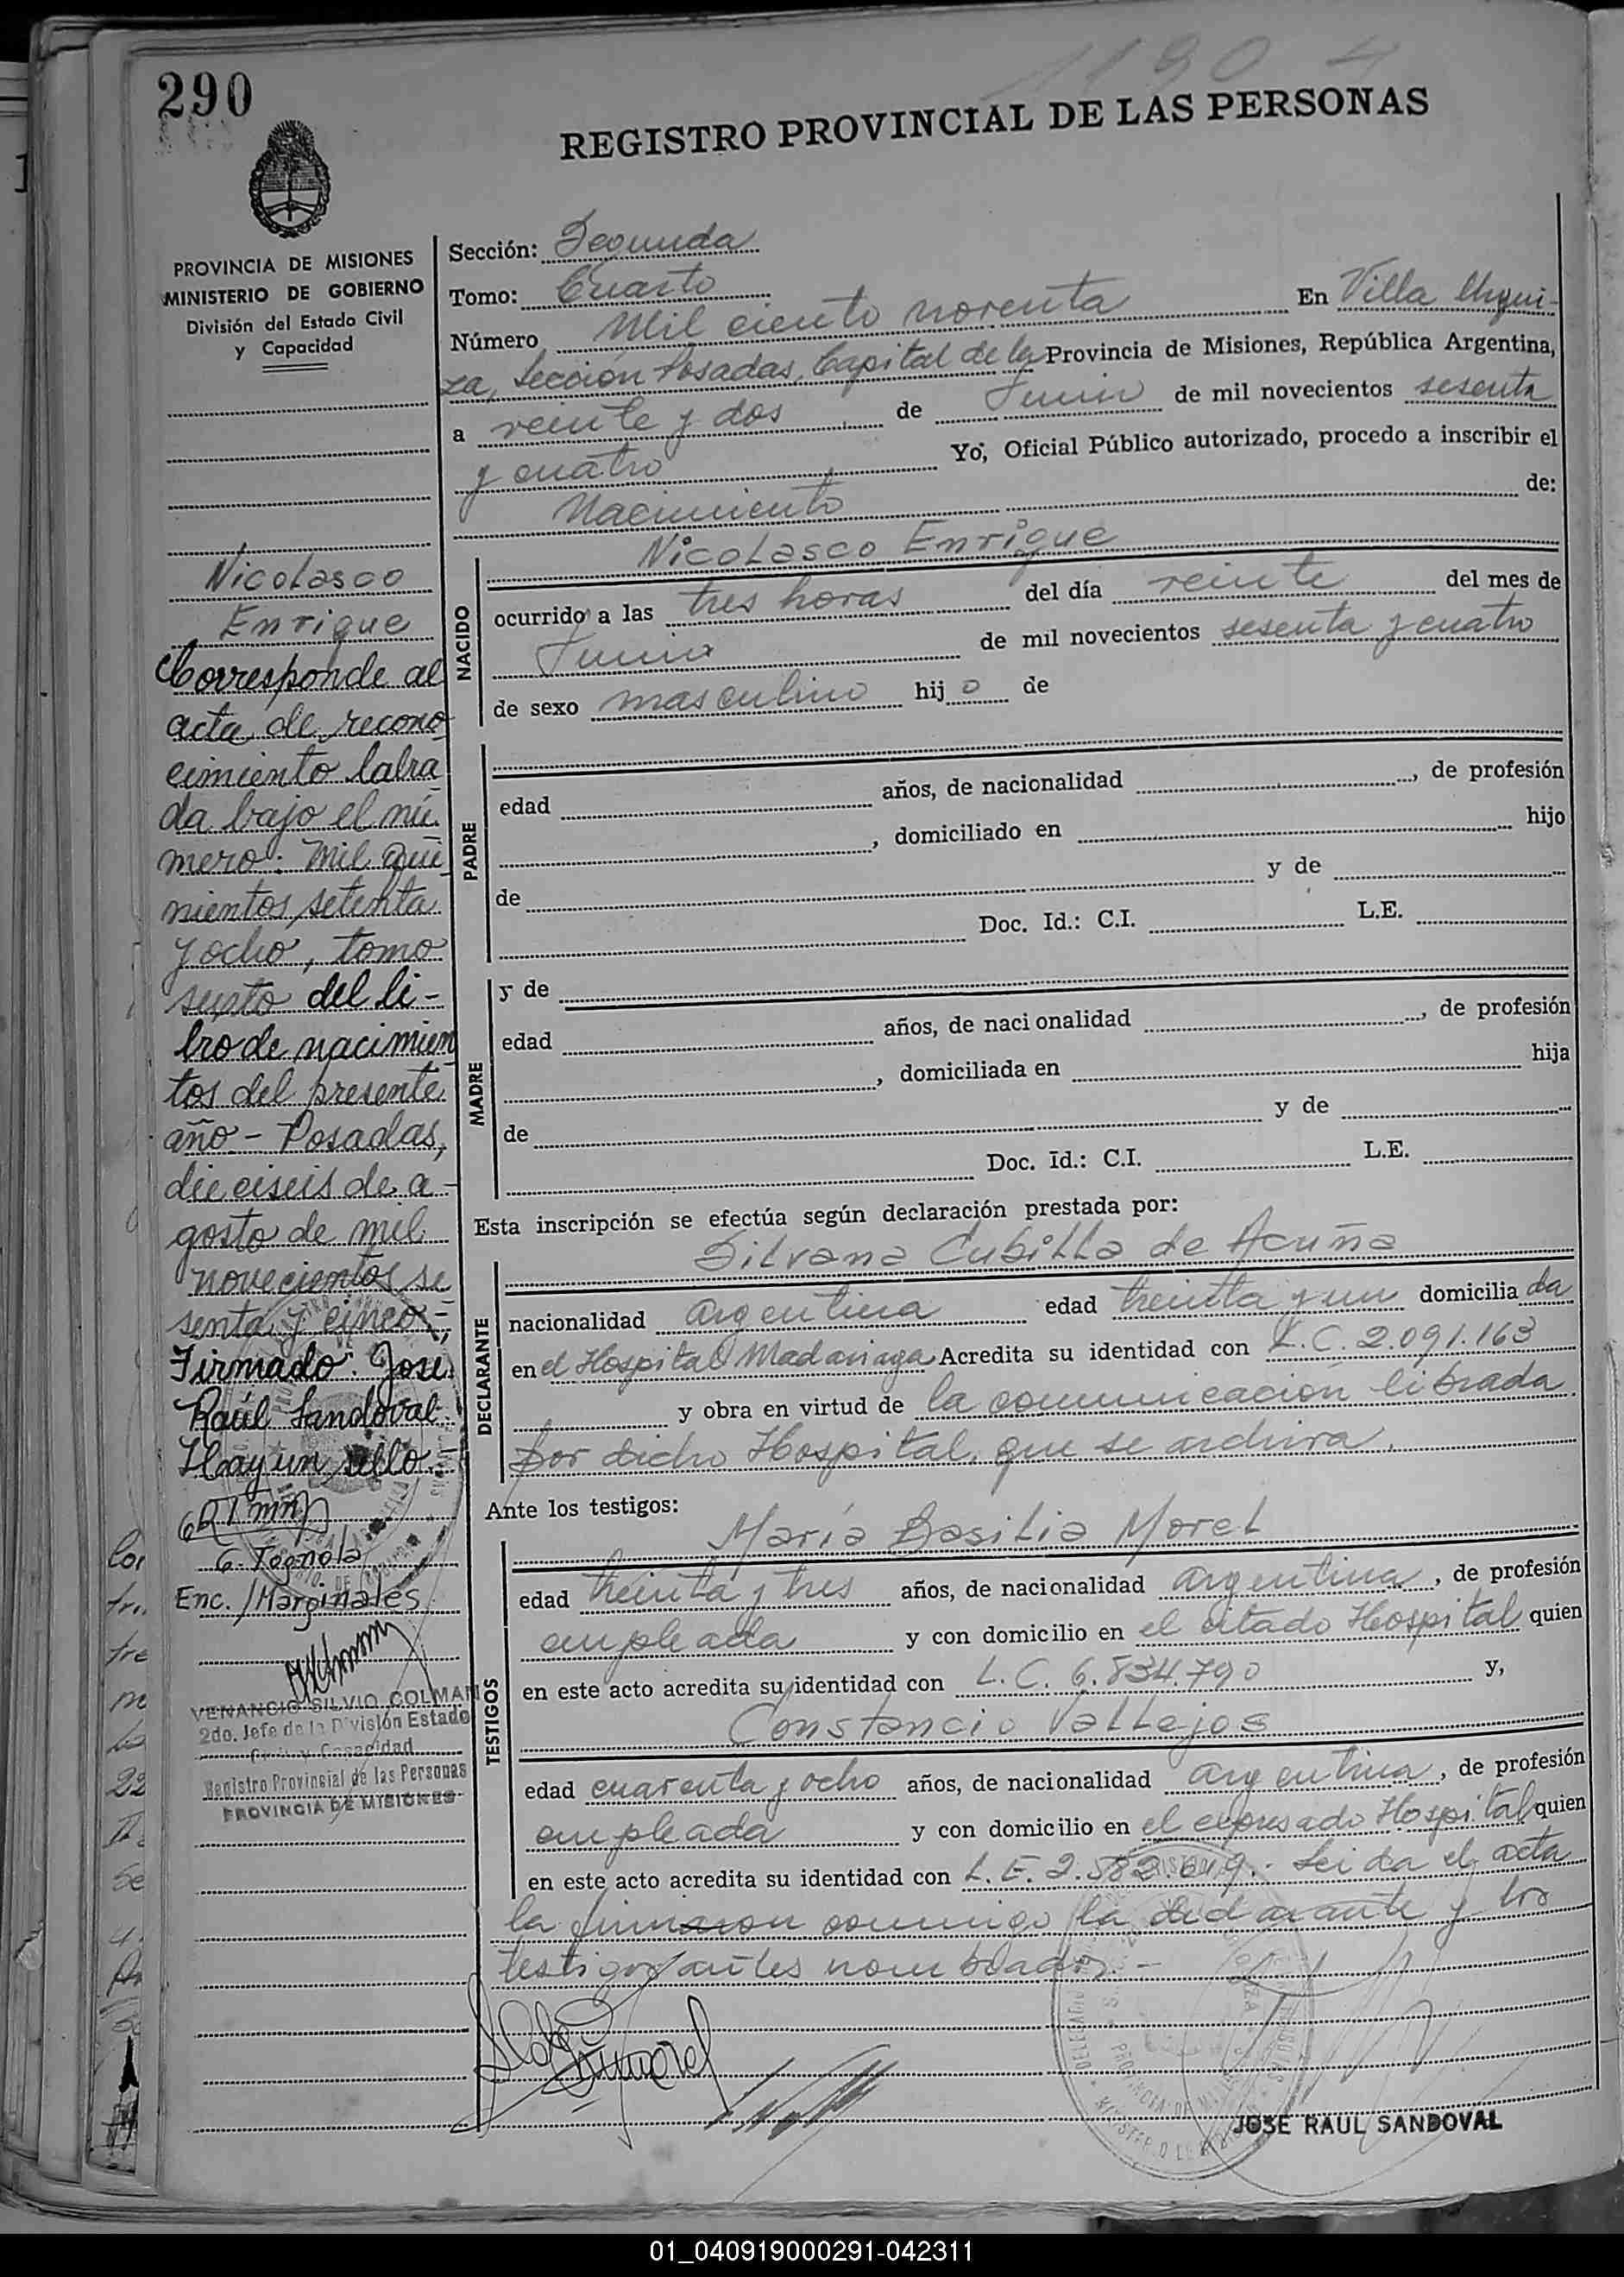 290
1190
REGISTRO PROVINCIAL DE LAS PERSONAS
PROVINCIA DE MISIONES
MINISTERIO DE GOBIERNO
División del Estado Civil
y Capacidad
Nicolasco
Enrique
Corresponde al
acta de recono
cimiento labra
da bajo el nú
mero: Mil qui
nientos setenta
y ocho, tomo
sexto del li-
bro de nacimien
tos del presente
año - Posadas,
dieciseis de a-
gosto de mil
novecientos se
senta y cinco.-
Firmado: José
Raúl Sandoval.
Hay un sello.-
G. Tognola
Enc. / Marginales
VENANCIO SILVIO COLMAN
2do. Jefe de la División Estado
Civil y Capacidad
Registro Provincial de las Personas
PROVINCIA DE MISIONES
Sección: Segunda
Tomo: Cuarto
Número Mil ciento noventa En Villa Urqui-
za, Sección Posadas, Capital de la Provincia de Misiones, República Argentina,
a veinte y dos de Junio de mil novecientos sesenta
y cuatro Yo, Oficial Público autorizado, procedo a inscribir el
Nacimiento de:
NACIDO
Nicolasco Enrique
ocurrido a las tres horas del día veinte del mes de
Junio de mil novecientos sesenta y cuatro
de sexo masculino hijo de
PADRE
edad años, de nacionalidad , de profesión
, domiciliado en hijo
de y de
Doc. Id.: C.I. L.E.
MADRE
y de
edad años, de nacionalidad , de profesión
, domiciliada en hija
de y de
Doc. Id.: C.I. L.E.
Esta inscripción se efectúa según declaración prestada por:
DECLARANTE
Silvana Cubilla de Acuña
nacionalidad argentina edad treinta y un domiciliada
en el Hospital Madariaga Acredita su identidad con L.C. 2.091.163
y obra en virtud de la comunicación librada
por dicho Hospital, que se archiva.
Ante los testigos:
TESTIGOS
María Basilia Morel
edad treinta y tres años, de nacionalidad argentina, de profesión
empleada y con domicilio en el citado Hospital quien
en este acto acredita su identidad con L.C. 6.834.790 y,
Constancio Vallejos
edad cuarenta y ocho años, de nacionalidad argentina, de profesión
empleada y con domicilio en el expresado Hospital quien
en este acto acredita su identidad con L.E. 2.582.619.- Leida el acta
la firmaron conmigo la declarante y los
testigos antes nombrados.-
JOSE RAUL SANDOVAL
01_040919000291-042311